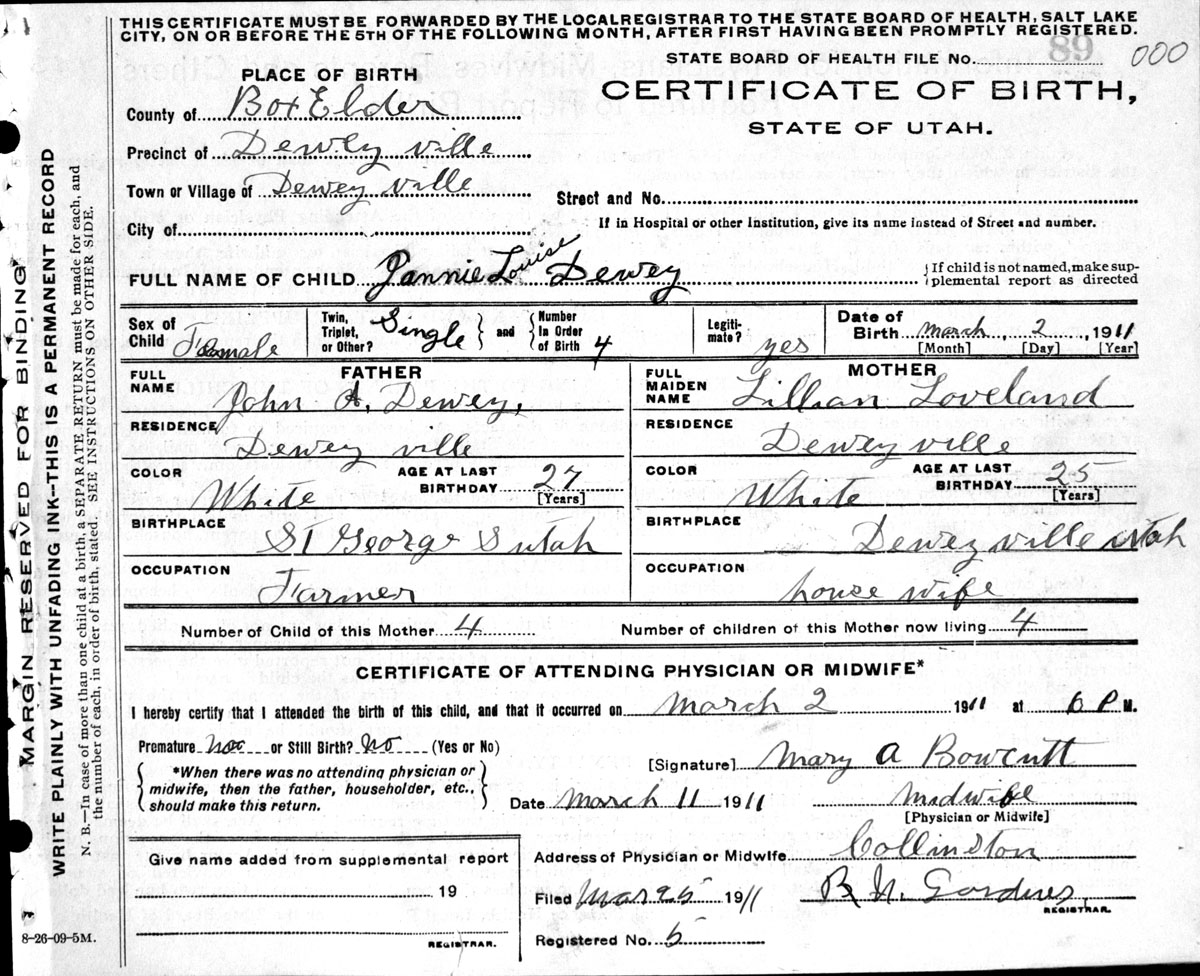 THIS CERTIFICATE MUST BE FORWARDED BY THE LOCAL REGISTRAR TO THE STATE BOARD OF HEALTH, SALT LAKE
CITY, ON OR BEFORE THE 5TH OF THE FOLLOWING MONTH, AFTER FIRST HAVING BEEN PROMPTLY REGISTERED.
STATE BOARD OF HEALTH FILE No. 89 000
PLACE OF BIRTH
CERTIFICATE OF BIRTH,
County of Box Elder
STATE OF UTAH.
Precinct of Dewey ville
Town or Village of Dewey ville
Street and No.
City of
If in Hospital or other Institution, give its name instead of Street and number.
FULL NAME OF CHILD Jannie Louise Dewey
{ If child is not named, make sup-
plemental report as directed
Sex of Child Female
Twin, Triplet, or Other? Single } and { Number In Order of Birth 4
Legiti-mate? yes
Date of Birth March 2 1911
[Month] [Day] [Year]
FATHER
FULL NAME John A. Dewey,
RESIDENCE Dewey ville
COLOR White AGE AT LAST BIRTHDAY 27 [Years]
BIRTHPLACE St George S utah
OCCUPATION Farmer
MOTHER
FULL MAIDEN NAME Lillian Loveland
RESIDENCE Dewey ville
COLOR White AGE AT LAST BIRTHDAY 25 [Years]
BIRTHPLACE Dewey ville utah
OCCUPATION house wife
Number of Child of this Mother 4 Number of children of this Mother now living 4
CERTIFICATE OF ATTENDING PHYSICIAN OR MIDWIFE*
I hereby certify that I attended the birth of this child, and that it occurred on March 2 1911 at 6 P M.
Premature or Still Birth? No (Yes or No)
{ *When there was no attending physician or
midwife, then the father, householder, etc.,
should make this return. }
[Signature] Mary A Bowcutt
Date March 11 1911 Midwife
[Physician or Midwife]
Give name added from supplemental report
19
REGISTRAR.
Address of Physician or Midwife
Filed Mar 25 1911 B. H. Gardner
REGISTRAR.
Registered No. 5
8-26-09-5M.
MARGIN RESERVED FOR BINDING
WRITE PLAINLY WITH UNFADING INK--THIS IS A PERMANENT RECORD
N. B.—In case of more than one child at a birth, a SEPARATE RETURN must be made for each, and
the number of each, in order of birth, stated. SEE INSTRUCTIONS ON OTHER SIDE.